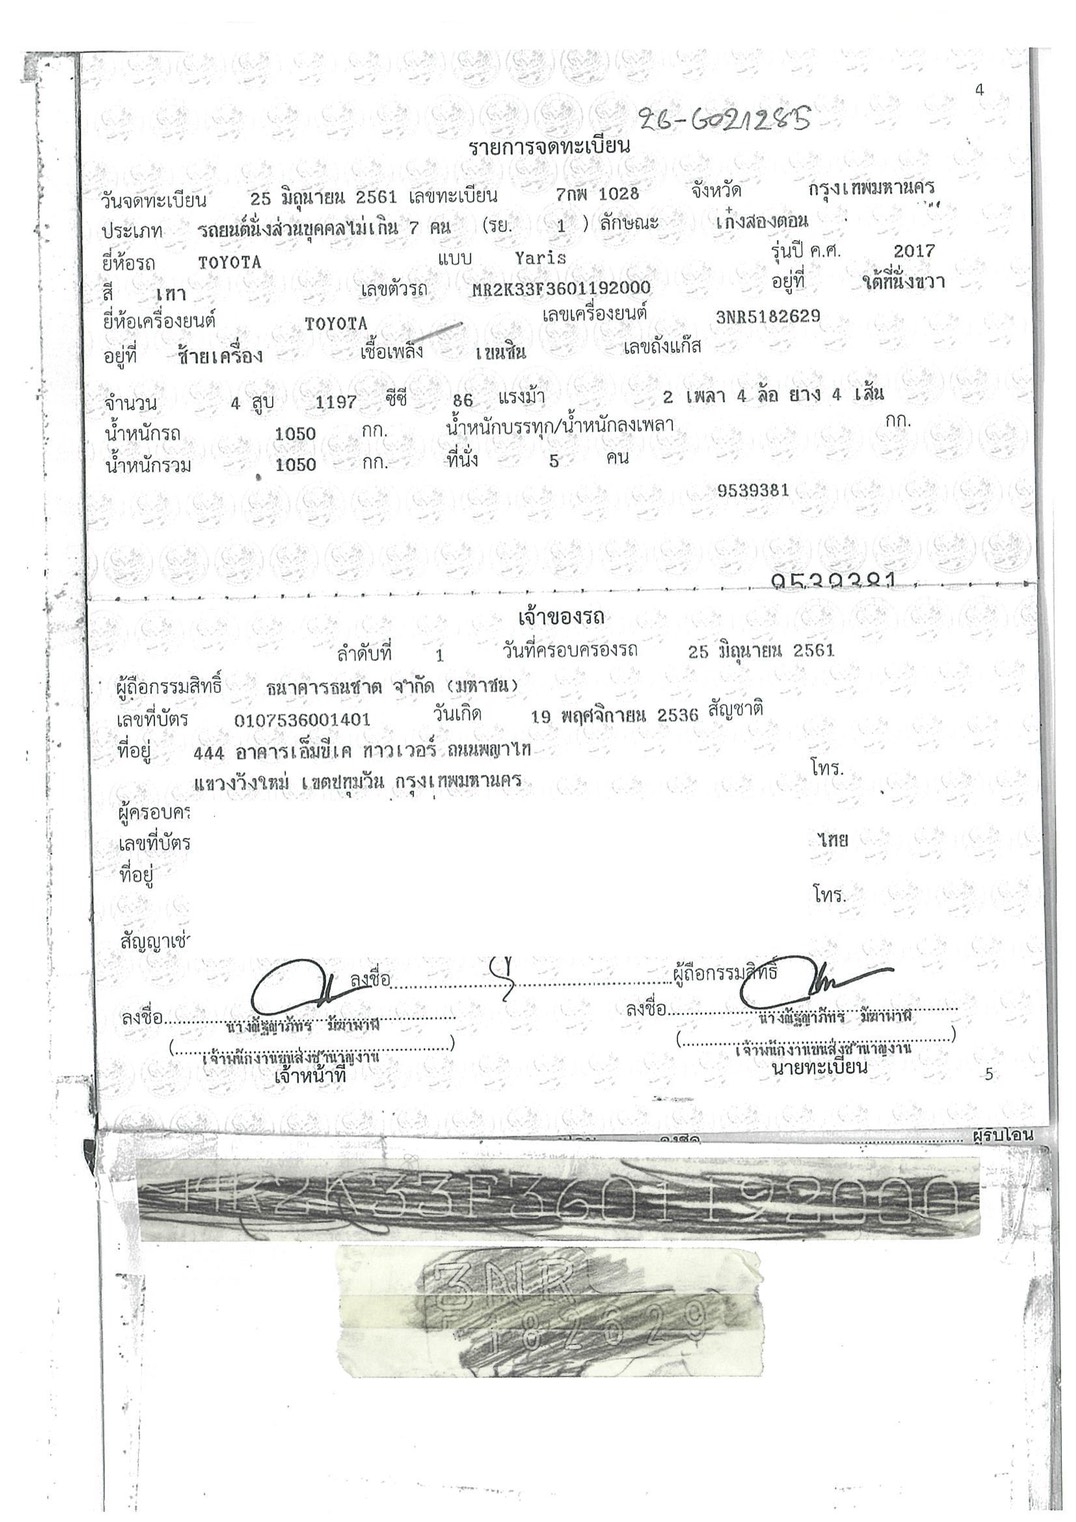 4
26-6021285
รายการจดทะเบียน
วันจดทะเบียน 25 มิถุนายน 2561 เลขทะเบียน 7กพ 1028 จังหวัด กรุงเทพมหานคร
ประเภท รถยนต์นั่งส่วนบุคคลไม่เกิน 7 คน (รย. 1 ) ลักษณะ เก๋งสองตอน
ยี่ห้อรถ TOYOTA แบบ Yaris รุ่นปี ค.ศ. 2017
สี เทา เลขตัวรถ MR2K33F3601192000 อยู่ที่ ใต้ที่นั่งขวา
ยี่ห้อเครื่องยนต์ TOYOTA เลขเครื่องยนต์ 3NR5182629
อยู่ที่ ซ้ายเครื่อง เชื้อเพลิง เบนซิน เลขถังแก๊ส
จำนวน 4 สูบ 1197 ซีซี 86 แรงม้า 2 เพลา 4 ล้อ ยาง 4 เส้น
น้ำหนักรถ 1050 กก. น้ำหนักบรรทุก/น้ำหนักลงเพลา กก.
น้ำหนักรวม 1050 กก. ที่นั่ง 5 คน
9539381
9539381
เจ้าของรถ
ลำดับที่ 1 วันที่ครอบครองรถ 25 มิถุนายน 2561
ผู้ถือกรรมสิทธิ์ ธนาคารธนชาต จำกัด (มหาชน)
เลขที่บัตร 0107536001401 วันเกิด 19 พฤศจิกายน 2536 สัญชาติ
ที่อยู่ 444 อาคารเอ็มบีเค ทาวเวอร์ ถนนพญาไท
แขวงวังใหม่ เขตปทุมวัน กรุงเทพมหานคร โทร.
ผู้ครอบคร
เลขที่บัตร ไทย
ที่อยู่
โทร.
สัญญาเช่
ลงชื่อ ผู้ถือกรรมสิทธิ์
ลงชื่อ ลงชื่อ
เจ้าพนักงานขนส่งชำนาญงาน เจ้าพนักงานขนส่งชำนาญงาน
เจ้าหน้าที่ นายทะเบียน
5
ผู้รับโอน
MR2K33F3601192000
3NR
182629